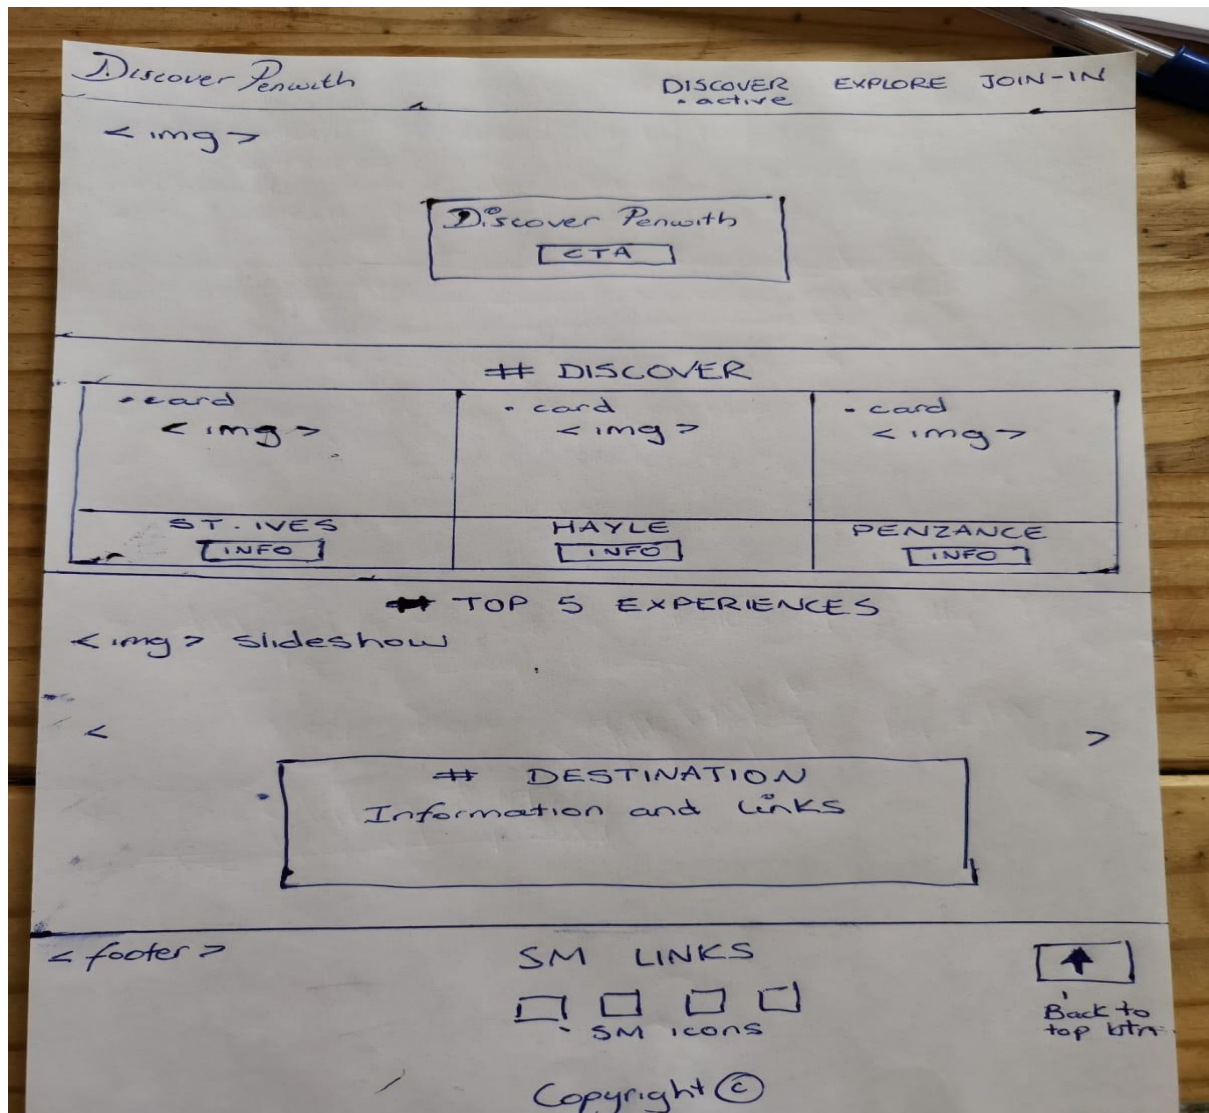 Discover Penwith DISCOVER EXPLORE JOIN-IN
.active
<img>
Discover Penwith
CTA
# DISCOVER
.card .card .card
<img> <img> <img>
ST. IVES HAYLE PENZANCE
INFO INFO INFO
# TOP 5 EXPERIENCES
<img> slideshow
< >
# DESTINATION
Information and Links
<footer> SM LINKS
SM icons
Back to
top btn
Copyright ©